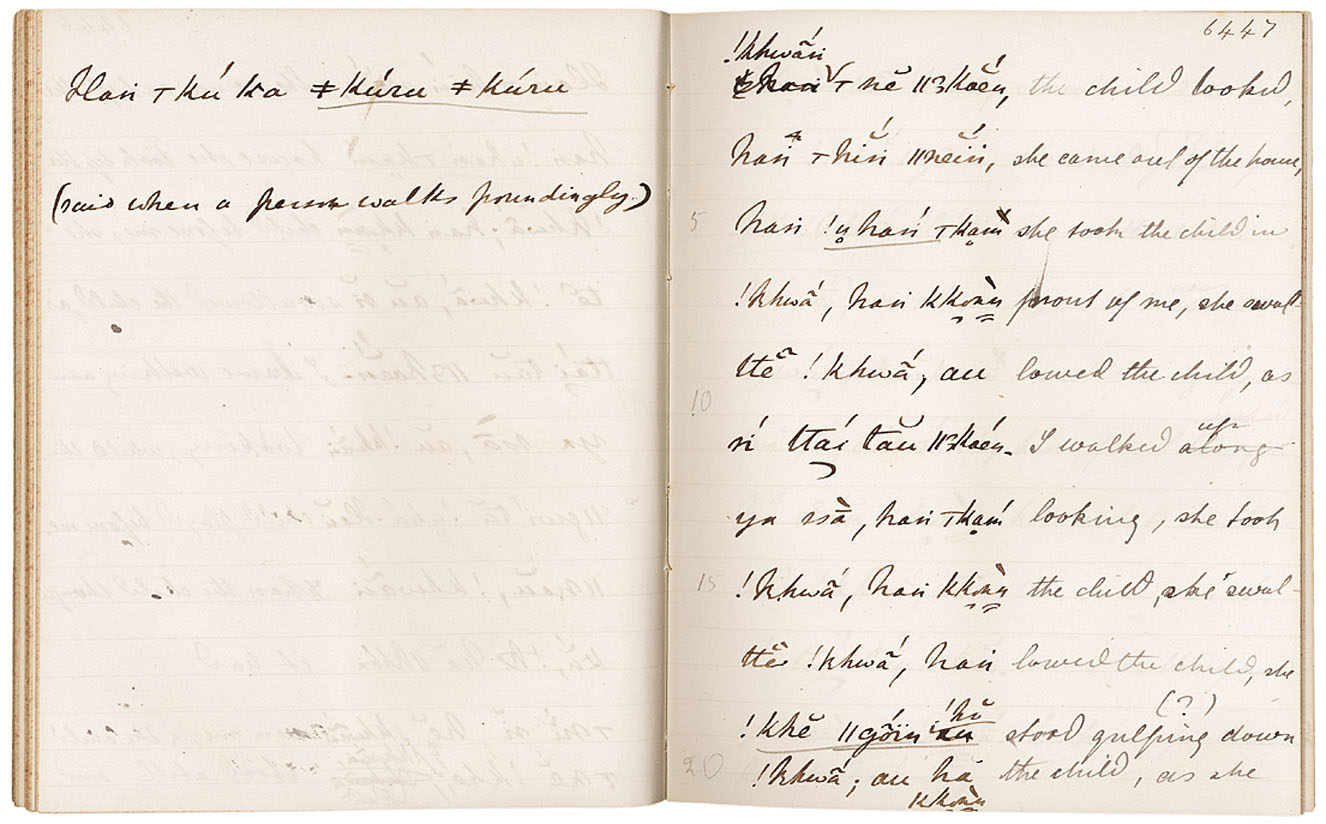 Han ⊤ kú ka ǂkúru ǂkúru
(said when a person walks poundingly.)
6447
!khwā́n
⊤ nĕ ǁɜkoḗn, the child looked,
han ⊤ hĭń ǁneiń, she came out of the house,
5 han !u̥ hań ⊤ka̤m she took the child in
!khwā́, han kko̤ṅn front of me, she swal-
ttĕ̄ !khwā́, au lowed the child, as
10
ń ttai tău ǁɜkoén I walked along up
han ⊤ka̤ḿ looking, she took
15 !khwā́, han kko̤ṅn the child, she swal-
ttĕ̄ !khwā́, han lowed the child, she
(?)
!khĕ ǁgṓïn hă stood gulping down
20 !khwā́; au hă the child, as she
kko̤ṅn